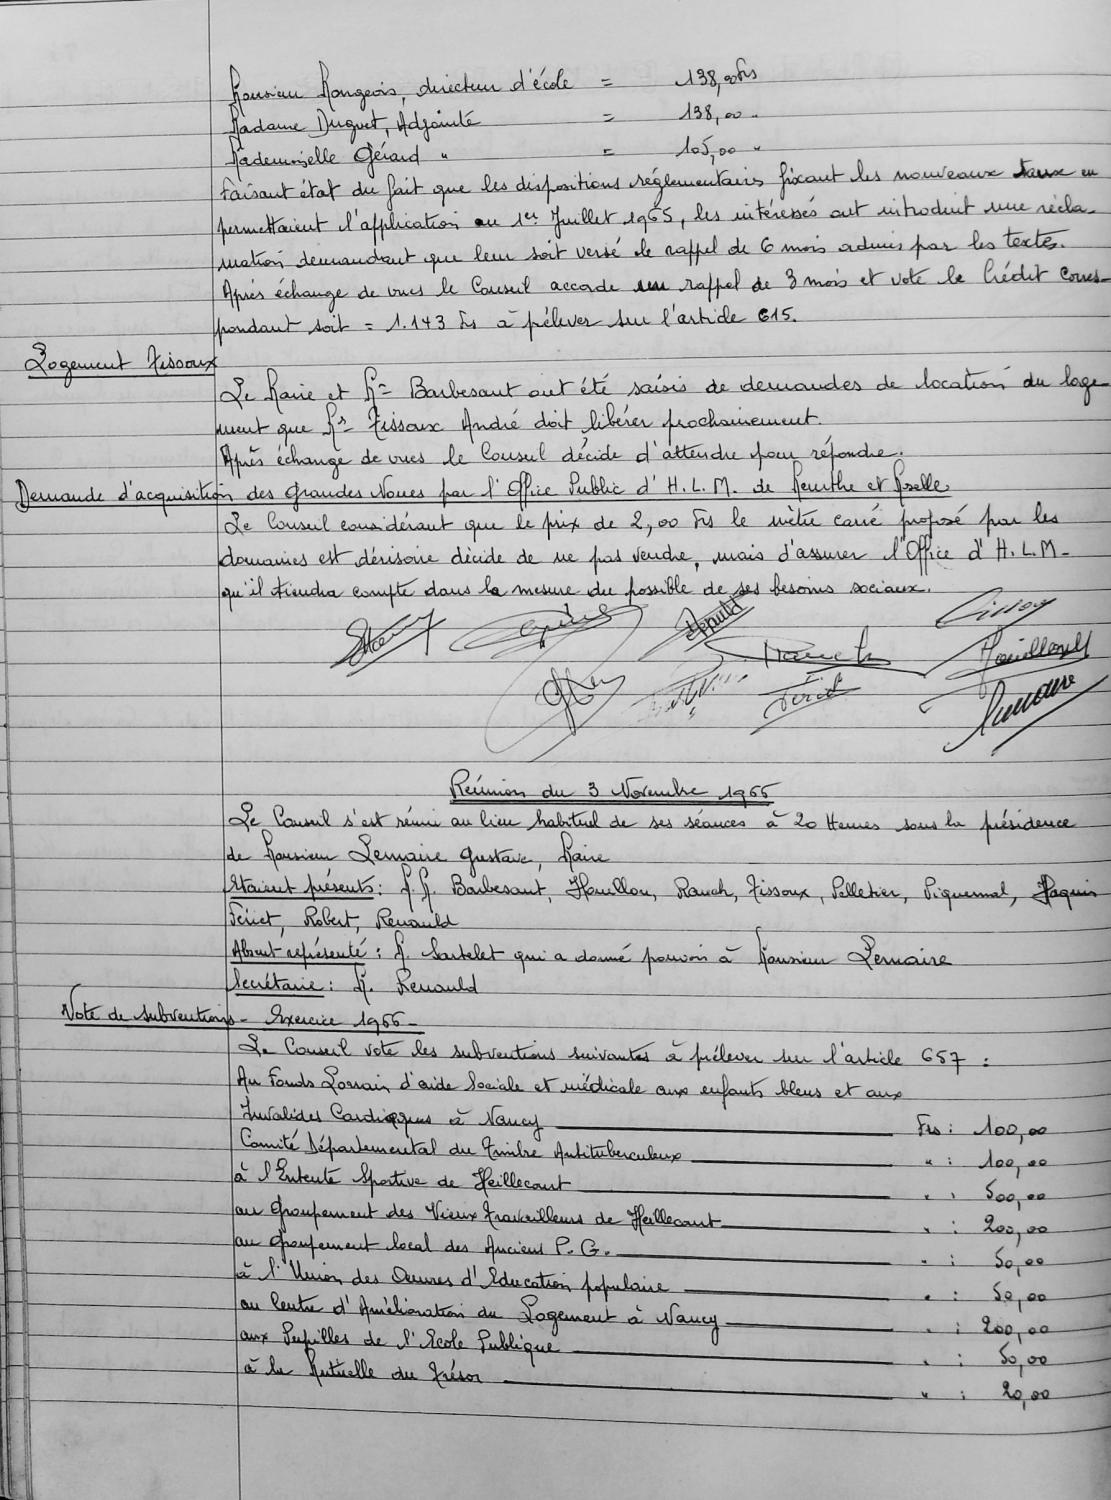 Monsieur Mangeois, directeur d'école = 138,00 Frs
Madame Duguet, Adjointe = 138,00 "
Mademoiselle Gérard " = 105,00 "
Faisant état du fait que les dispositions réglementaires fixant les nouveaux taux en
permettaient l'application au 1er Juillet 1965, les intéressés ont introduit une récla-
mation demandant que leur soit versé le rappel de 6 mois admis par les textes.
Après échange de vues le Conseil accorde un rappel de 3 mois et vote le Crédit corres-
pondant soit = 1.143 Frs à prélever sur l'article 615.
Logement Tissoux
Le Maire et Mr Barbesant ont été saisis de demandes de location du loge-
ment que Mr Tissoux André doit libérer prochainement.
Après échange de vues le Conseil décide d'attendre pour répondre.
Demande d'acquisition des Grandes Noues par l'Office Public d'H.L.M. de Meurthe et Moselle.
Le Conseil considérant que le prix de 2,00 Frs le mètre carré proposé par les
domaines est dérisoire décide de ne pas vendre, mais d'assurer l'Office d'H.L.M-
qu'il tiendra compte dans la mesure du possible de ses besoins sociaux.
Réunion du 3 Novembre 1966
Le Conseil s'est réuni au lieu habituel de ses séances à 20 Heures sous la présidence
de Monsieur Lemaire Gustave, Maire
Etaient présents: M.M. Barbesant, Houillon, Rauch, Tissoux, Pelletier, Piquemal, Haquin
Fériet, Robert, Renauld
Absent représenté: M. Sartelet qui a donné pouvoir à Monsieur Lemaire
Secrétaire: M. Renauld
Vote de subventions - Exercice 1966 -
Le Conseil vote les subventions suivantes à prélever sur l'article 657:
Au Fonds Lorrain d'aide Sociale et médicale aux enfants bleus et aux
Invalides Cardiaques à Nancy Frs: 100,00
Comité Départemental du Timbre Antituberculeux " : 100,00
à l'Entente Sportive de Heillecourt " : 500,00
au Groupement des Vieux Travailleurs de Heillecourt " : 200,00
au Groupement local des Anciens P.G. " : 50,00
à l'Union des Oeuvres d'Education populaire " : 50,00
au Centre d'Amélioration du Logement à Nancy " : 200,00
aux Pupilles de l'Ecole Publique " : 50,00
à la Mutuelle du Trésor " : 20,00